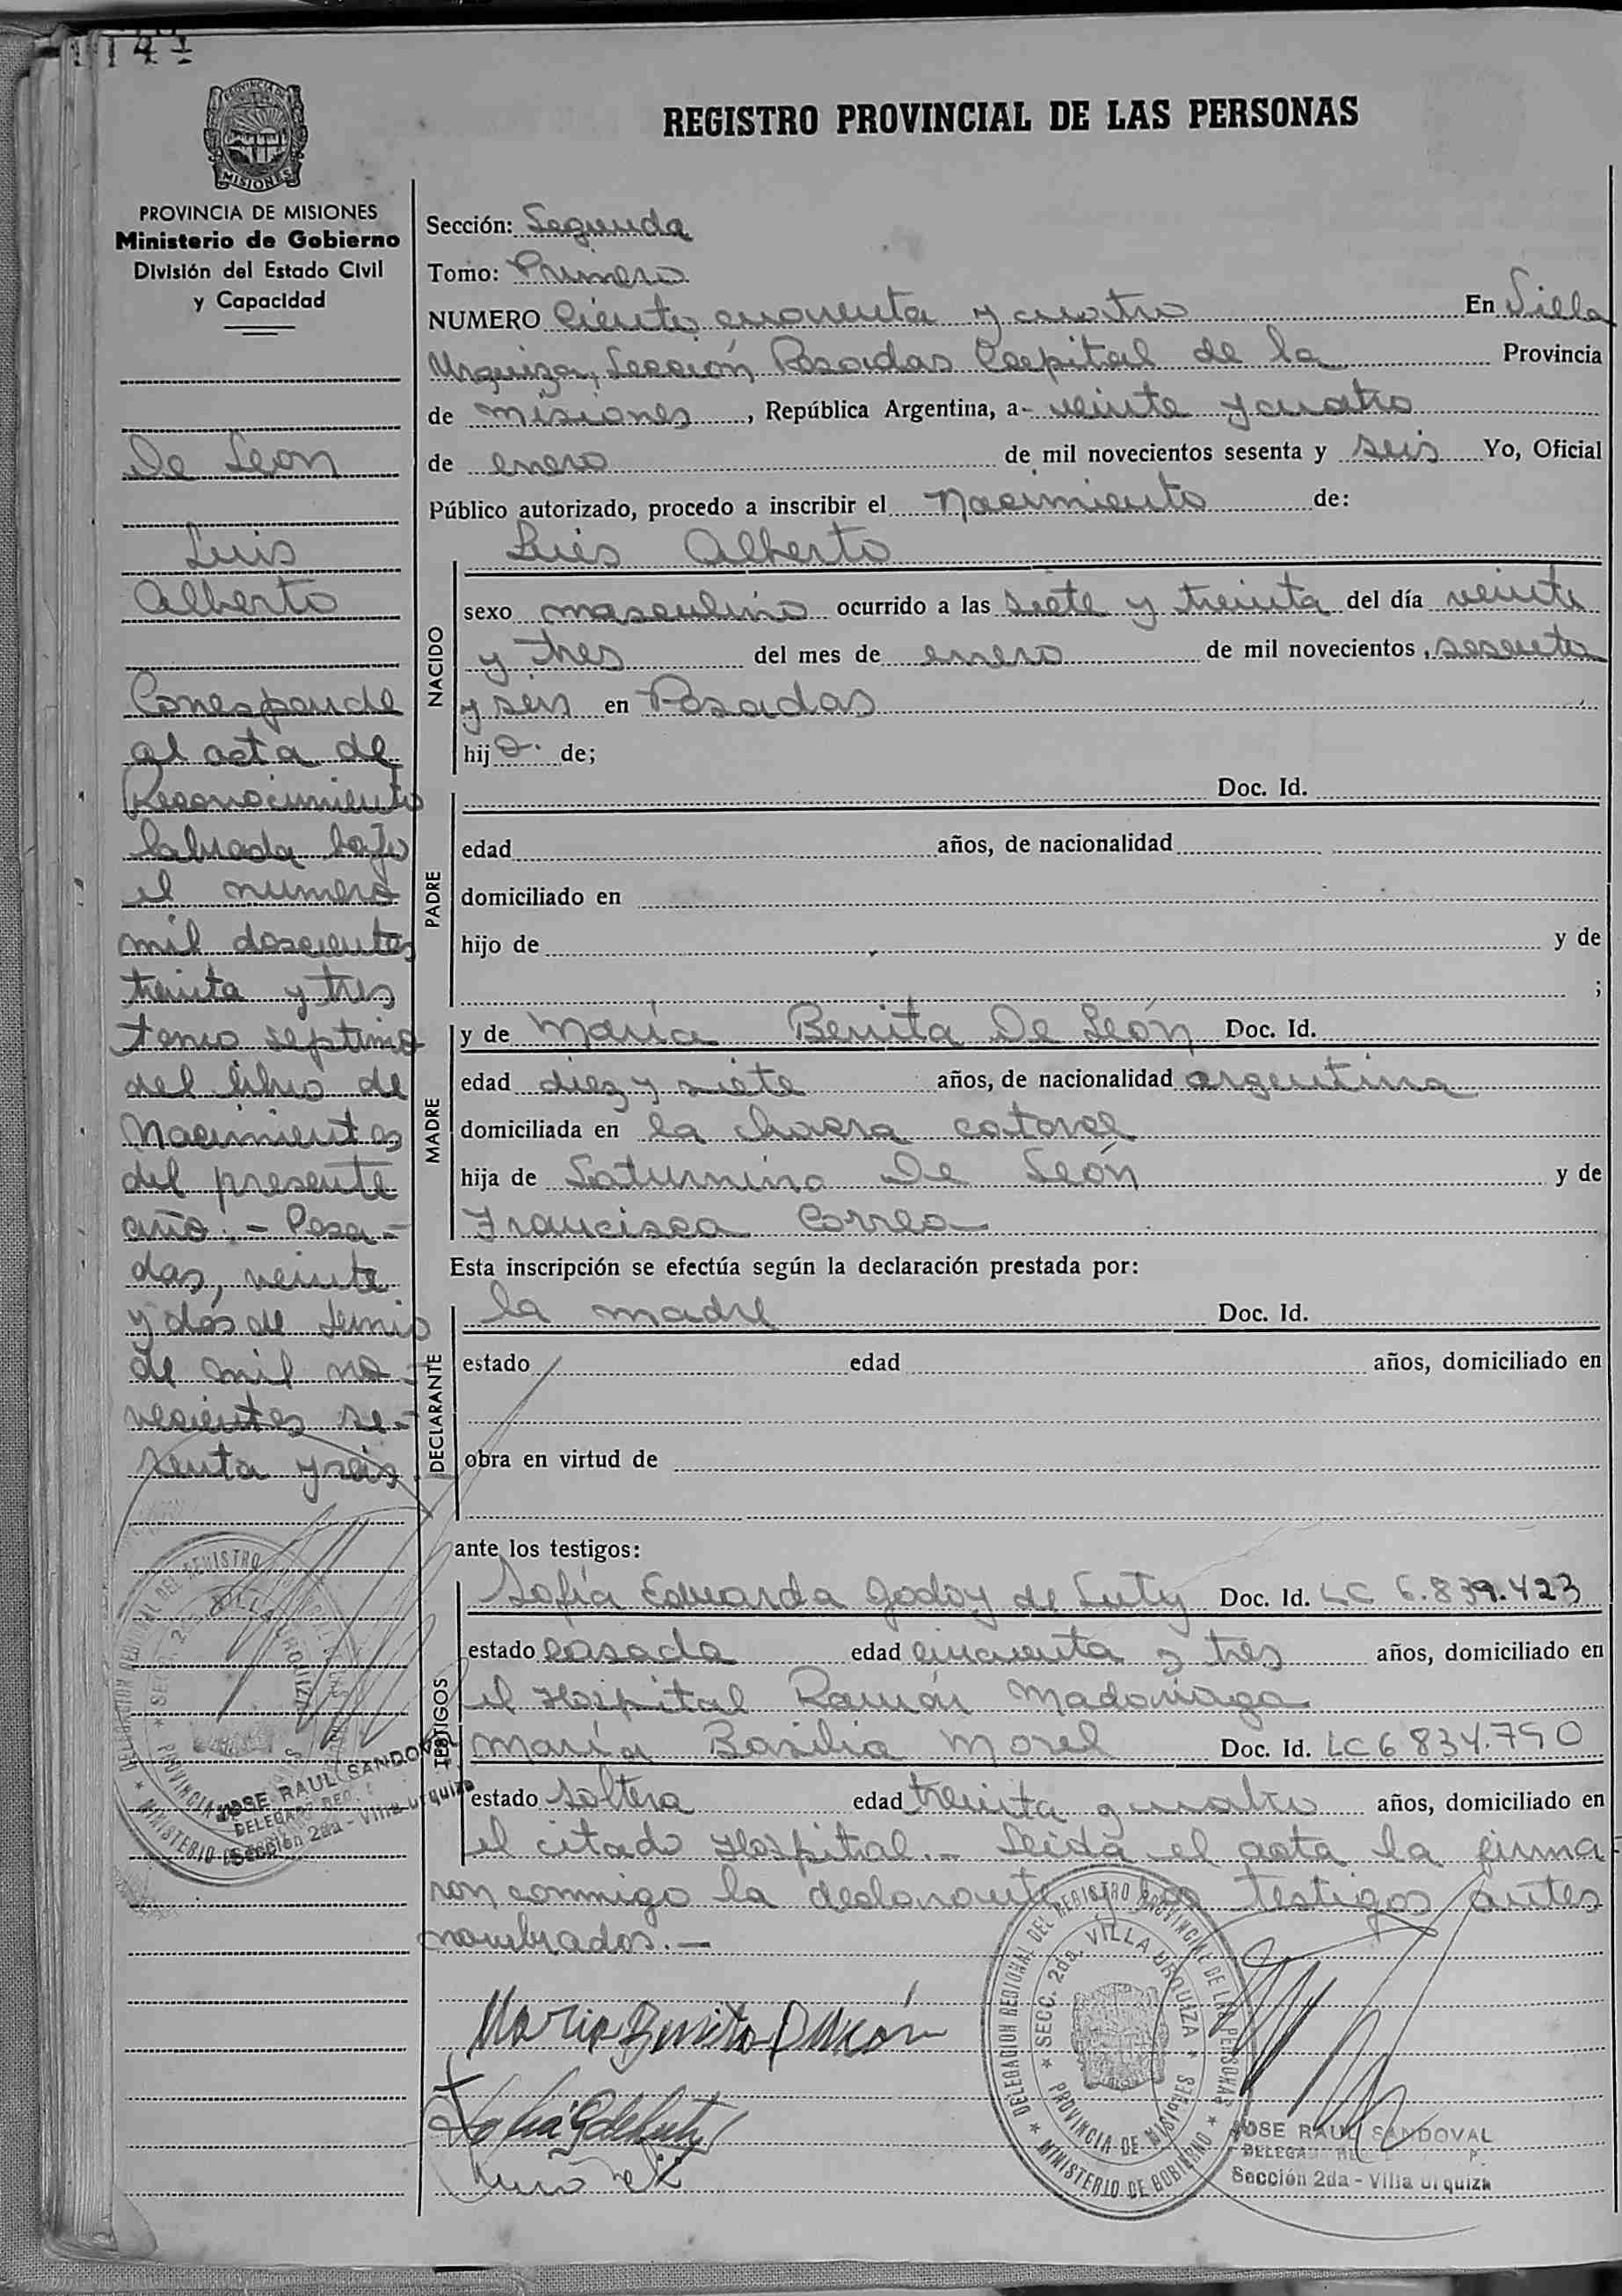 REGISTRO PROVINCIAL DE LAS PERSONAS
MISIONES
PROVINCIA DE MISIONES
Ministerio de Gobierno
División del Estado Civil
y Capacidad
De Leon
Luis
Alberto
Corresponde
al acta de
Reconocimiento
labrada bajo
el numero
mil doscientos
treinta y tres
tomo septimo
del libro de
Nacimientos
del presente
año.- Posa-
das, veinte
y dos de Junio
de mil no-
vecientos se-
senta y seis
JOSE RAUL SANDOVAL
Sección 2da - Villa Urquiza
Sección: Segunda
Tomo: Primero
NUMERO Ciento cuarenta y cuatro En Villa
Urquiza, Sección Posadas Capital de la Provincia
de Misiones, República Argentina, a- veinte y cuatro
de enero de mil novecientos sesenta y seis Yo, Oficial
Público autorizado, procedo a inscribir el Nacimiento de:
NACIDO
Luis Alberto
sexo masculino ocurrido a las siete y treinta del día veinte
y tres del mes de enero de mil novecientos sesenta
y seis en Posadas
hijo de;
PADRE
Doc. Id.
edad años, de nacionalidad
domiciliado en
hijo de y de
;
MADRE
y de María Benita De León Doc. Id.
edad diez y siete años, de nacionalidad argentina
domiciliada en la chacra catorce
hija de Saturnino De León y de
Francisca Correa
Esta inscripción se efectúa según la declaración prestada por:
DECLARANTE
la madre Doc. Id.
estado edad años, domiciliado en
obra en virtud de
ante los testigos:
TESTIGOS
Sofía Eduarda Godoy de Luty Doc. Id. LC 6.839.423
estado casada edad cincuenta y tres años, domiciliado en
el Hospital Ramón Madariaga
María Basilia Morel Doc. Id. LC 6.834.790
estado soltera edad treinta y cuatro años, domiciliado en
el citado Hospital.- Leída el acta la firma
ron conmigo la declarante y los testigos antes
nombrados.-
Maria Benita De León
DELEGACION REGIONAL DEL REGISTRO PROVINCIAL DE LAS PERSONAS
SECC. 2da. VILLA URQUIZA
PROVINCIA DE MISIONES
MINISTERIO DE GOBIERNO
JOSE RAUL SANDOVAL
Sección 2da - Villa Urquiza